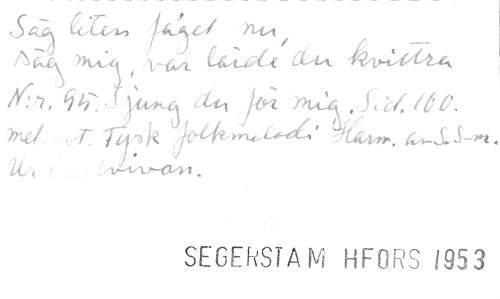 Säg liten fågel nu,
säg mig, var lärde du kvittra
N:r. 95. Sjung du för mig. Sid. 100.
mel. o. t. Tysk folkmelodi Harm. av S.S-m.
Ur
SEGERSTAM HFORS 1953